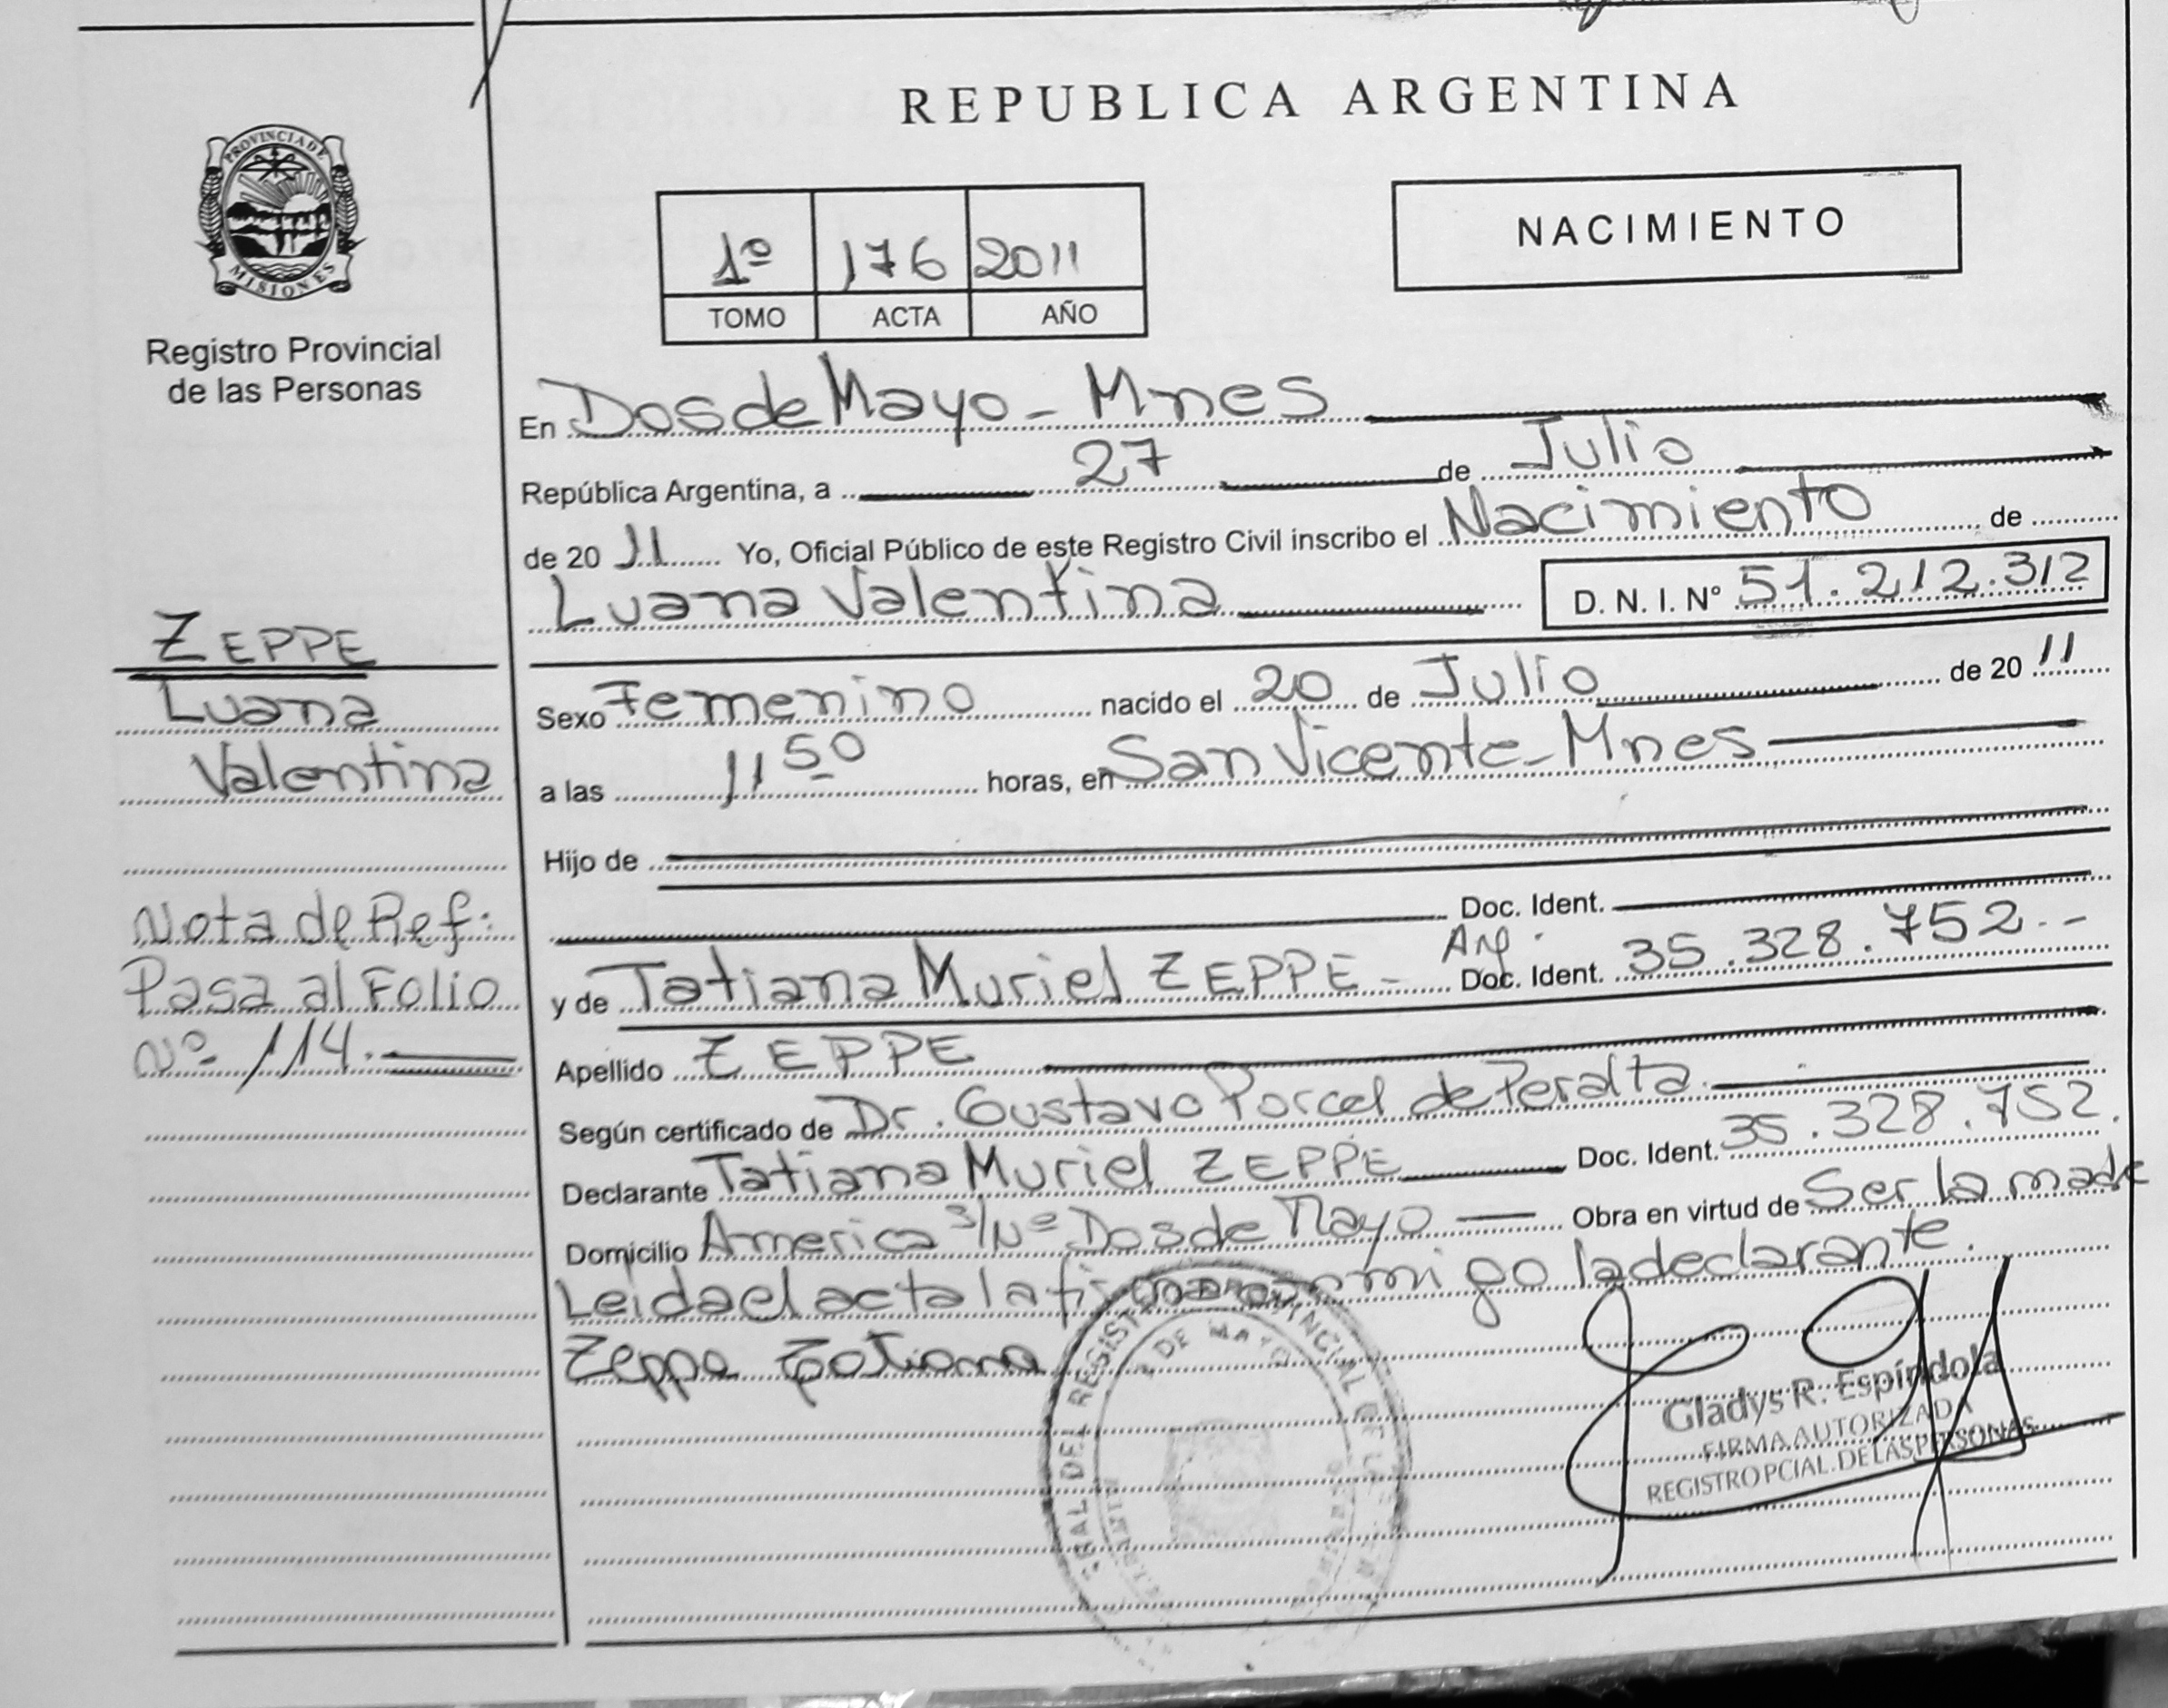 REPUBLICA ARGENTINA
PROVINCIA DE
MISIONES
Registro Provincial
de las Personas
1º 176 2011
TOMO ACTA AÑO
NACIMIENTO
En Dos de Mayo - Mnes
República Argentina, a 27 de Julio
de 20 11 Yo, Oficial Público de este Registro Civil inscribo el Nacimiento de
Luana Valentina D. N. I. N° 51.212.312
ZEPPE
Luana
Valentina
Sexo Femenino nacido el 20 de Julio de 20 11
a las 11 50 horas, en San Vicente - Mnes
Hijo de
Doc. Ident.
Nota de Ref:
Pasa al Folio
Nº 114.
y de Tatiana Muriel ZEPPE - Arg. Doc. Ident. 35.328.752.-
Apellido ZEPPE
Según certificado de Dr. Gustavo Porcel de Peralta
Declarante Tatiana Muriel ZEPPE Doc. Ident. 35.328.752.
Domicilio America S/Nº Dos de Mayo Obra en virtud de Ser la made
Leida el acta la firma conmigo la declarante.
Zeppe Tatiana
DE MAYO
Gladys R. Espíndola
FIRMA AUTORIZADA
REGISTRO PCIAL. DE LAS PERSONAS